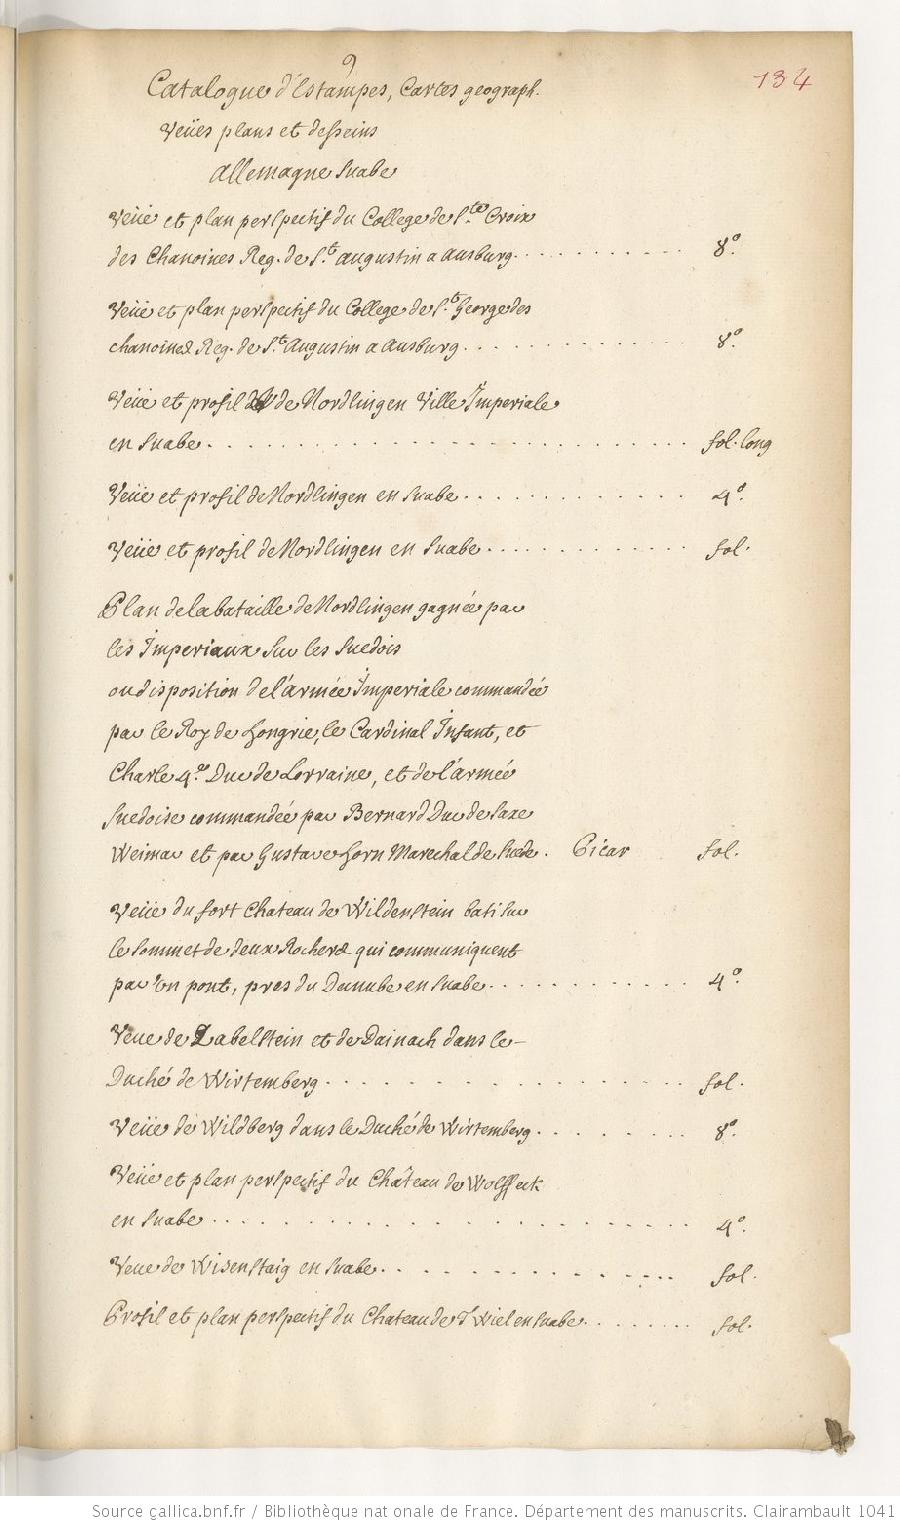 9
134
Catalogue d'Estampes, Cartes geograph.
Veües plans et desseins
Allemagne Suabe
Veüe et plan perspectif du College de S.te Croix
des Chanoines Reg. de S.t Augustin a Ausburg. . . . . . . . . . . . 8.o
Veüe et plan perspectif du College de S.t George des
chanoines Reg. de S.t Augustin a Ausburg. . . . . . . . . . . . 8.o
Veüe et profil de Nordlingen Ville Imperiale
en Suabe. . . . . . . . . . . . . . . . . . . . . . . fol. long
Veüe et profil de Nordlingen en Suabe. . . . . . . . . . . . 4.o
Veüe et profil de Nordlingen en Suabe. . . . . . . . . . . . fol.
Plan de la bataille de Nordlingen gagnée par
les Imperiaux sur les Suedois
ou disposition de l'armée Imperiale commandée
par le Roy de hongrie, le Cardinal Infant, et
Charle 4.e Duc de Lorraine, et de l'armée
suedoise commandée par Bernard Duc de Saxe
Weimar et par Gustave horn Marechal de Suede. Picar fol.
Veüe du fort Chateau de Wildenstein bati sur
le sommet de deux Rochers qui communiquent
par un pont, pres du Danube en Suabe. . . . . . . . . . . 4.o
Veue de Zabelstein et de Dainach dans le
Duché de Wirtemberg. . . . . . . . . . . . . . . . . . . fol.
Veüe de Wildberg dans le Duché de Wirtemberg. . . . . . . . 8.o
Veüe et plan perspectif du Château de Wolffeck
en Suabe. . . . . . . . . . . . . . . . . . . . . . . 4.o
Veue de Wisenstaig en Suabe. . . . . . . . . . . . . . . fol.
Profil et plan perspectif du Chateau de Twiel en Suabe. . . . . . . . fol.
Source gallica.bnf.fr / Bibliothèque nationale de France. Département des manuscrits. Clairambault 1041